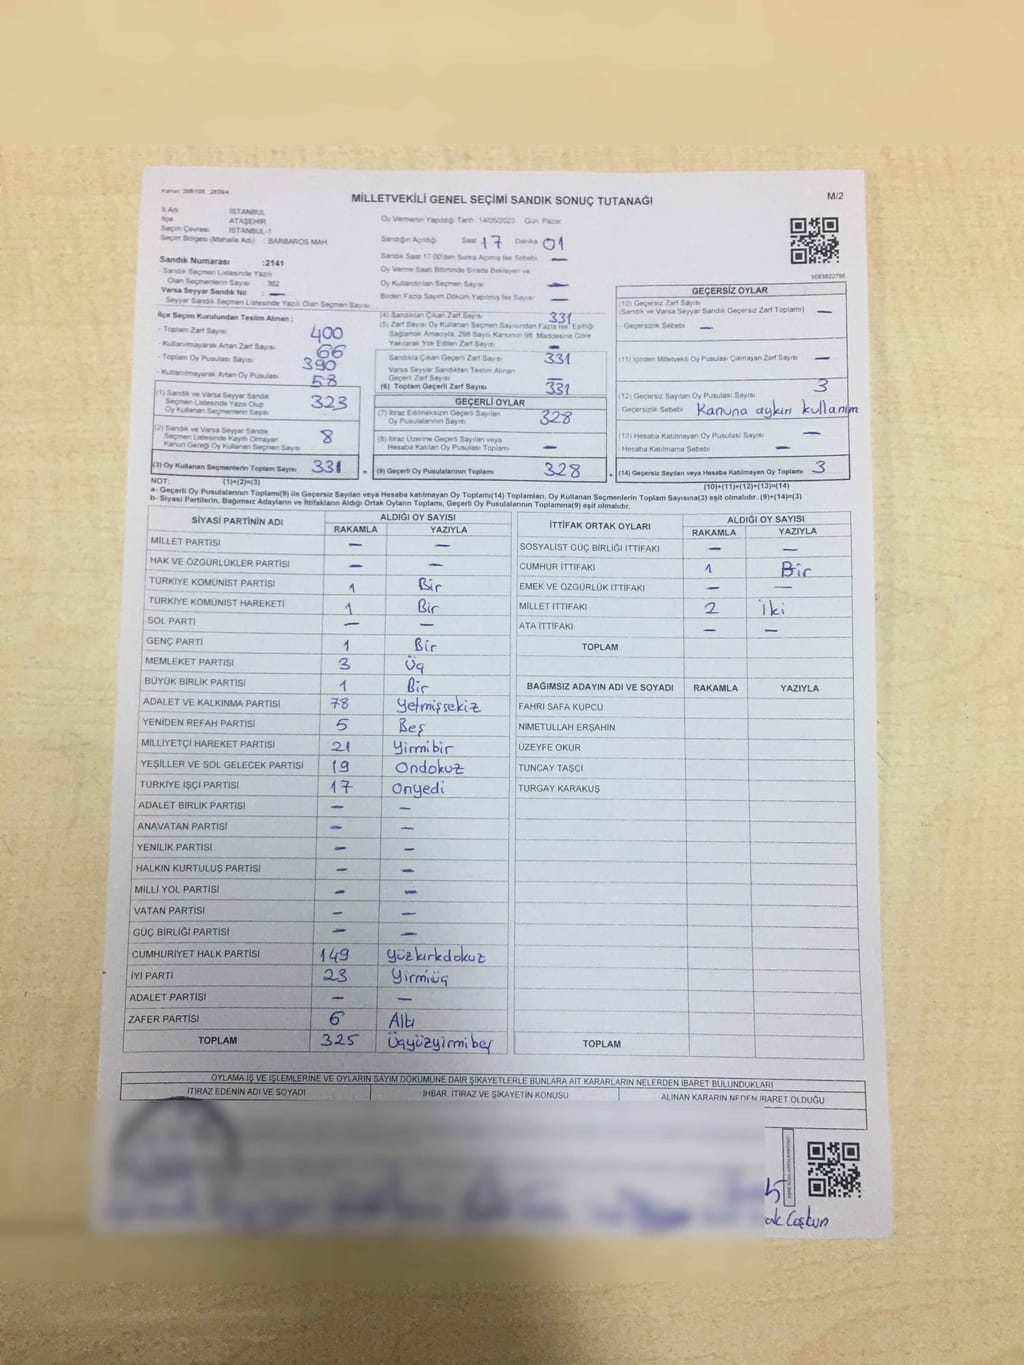 MİLLETVEKİLİ GENEL SEÇİMİ SANDIK SONUÇ TUTANAĞI
M/2
İl Adı İSTANBUL
İlçe ATAŞEHİR
Seçim Çevresi İSTANBUL-1
Seçim Bölgesi (Mahalle Adı) BARBAROS MAH.
Oy Vermenin Yapıldığı Tarih 14/05/2023 Gün Pazar
Sandığın Açıldığı Saat 17 Dakika 01
Sandık Saat 17:00'den Sonra Açılmış İse Sebebi —
Oy Verme Saati Bitiminde Sırada Bekleyen ve
Oy Kullandırılan Seçmen Sayısı —
Birden Fazla Sayım Döküm Yapılmış İse Sayısı —
Sandık Numarası :2141
- Sandık Seçmen Listesinde Yazılı
Olan Seçmenlerin Sayısı 362
Varsa Seyyar Sandık No : —
- Seyyar Sandık Seçmen Listesinde Yazılı Olan Seçmen Sayısı
İlçe Seçim Kurulundan Teslim Alınan ;
- Toplam Zarf Sayısı 400
- Kullanılmayarak Artan Zarf Sayısı 66
- Toplam Oy Pusulası Sayısı 390
- Kullanılmayarak Artan Oy Pusulası 58
(1) Sandık ve Varsa Seyyar Sandık
Seçmen Listesinde Yazılı Olup
Oy Kullanan Seçmenlerin Sayısı 323
(2) Sandık ve Varsa Seyyar Sandık
Seçmen Listesinde Kayıtlı Olmayan
Kanun Gereği Oy Kullanan Seçmen Sayısı 8
(3) Oy Kullanan Seçmenlerin Toplam Sayısı 331
(4) Sandıktan Çıkan Zarf Sayısı 331
(5) Zarf Sayısı Oy Kullanan Seçmen Sayısından Fazla İse, Eşitliği
Sağlamak Amacıyla, 298 Sayılı Kanunun 98. Maddesine Göre
Yakılarak Yok Edilen Zarf Sayısı —
Sandıkta Çıkan Geçerli Zarf Sayısı 331
Varsa Seyyar Sandıktan Teslim Alınan
Geçerli Zarf Sayısı —
(6) Toplam Geçerli Zarf Sayısı 331
GEÇERLİ OYLAR
(7) İtiraz Edilmeksizin Geçerli Sayılan
Oy Pusulalarının Sayısı 328
(8) İtiraz Üzerine Geçerli Sayılan veya
Hesaba Katılan Oy Pusulaları Toplamı —
= (9) Geçerli Oy Pusulalarının Toplamı 328
1083822756
GEÇERSİZ OYLAR
(10) Geçersiz Zarf Sayısı
(Sandık ve Varsa Seyyar Sandık Geçersiz Zarf Toplamı) —
- Geçersizlik Sebebi —
(11) İçinden Milletvekili Oy Pusulası Çıkmayan Zarf Sayısı —
(12) Geçersiz Sayılan Oy Pusulası Sayısı 3
Geçersizlik Sebebi Kanuna aykırı kullanım
(13) Hesaba Katılmayan Oy Pusulası Sayısı —
- Hesaba Katılmama Sebebi —
+ (14) Geçersiz Sayılan veya Hesaba Katılmayan Oy Toplamı 3
NOT: (1)+(2)=(3)
(10)+(11)+(12)+(13)=(14)
a- Geçerli Oy Pusulalarının Toplamı(9) ile Geçersiz Sayılan veya Hesaba katılmayan Oy Toplamı(14) Toplamları, Oy Kullanan Seçmenlerin Toplam Sayısına(3) eşit olmalıdır. (9)+(14)=(3)
b- Siyasi Partilerin, Bağımsız Adayların ve İttifakların Aldığı Ortak Oyların Toplamı, Geçerli Oy Pusulalarının Toplamına(9) eşit olmalıdır.
SİYASİ PARTİNİN ADI ALDIĞI OY SAYISI
RAKAMLA YAZIYLA
MİLLET PARTİSİ — —
HAK VE ÖZGÜRLÜKLER PARTİSİ — —
TÜRKİYE KOMÜNİST PARTİSİ 1 Bir
TÜRKİYE KOMÜNİST HAREKETİ 1 Bir
SOL PARTİ — —
GENÇ PARTİ 1 Bir
MEMLEKET PARTİSİ 3 Üç
BÜYÜK BİRLİK PARTİSİ 1 Bir
ADALET VE KALKINMA PARTİSİ 78 Yetmişsekiz
YENİDEN REFAH PARTİSİ 5 Beş
MİLLİYETÇİ HAREKET PARTİSİ 21 Yirmibir
YEŞİLLER VE SOL GELECEK PARTİSİ 19 Ondokuz
TÜRKİYE İŞÇİ PARTİSİ 17 Onyedi
ADALET BİRLİK PARTİSİ — —
ANAVATAN PARTİSİ — —
YENİLİK PARTİSİ — —
HALKIN KURTULUŞ PARTİSİ — —
MİLLİ YOL PARTİSİ — —
VATAN PARTİSİ — —
GÜÇ BİRLİĞİ PARTİSİ — —
CUMHURİYET HALK PARTİSİ 149 Yüzkırkdokuz
İYİ PARTİ 23 Yirmiüç
ADALET PARTİSİ — —
ZAFER PARTİSİ 6 Altı
TOPLAM 325 Üçyüzyirmibeş
İTTİFAK ORTAK OYLARI ALDIĞI OY SAYISI
RAKAMLA YAZIYLA
SOSYALİST GÜÇ BİRLİĞİ İTTİFAKI — —
CUMHUR İTTİFAKI 1 Bir
EMEK VE ÖZGÜRLÜK İTTİFAKI — —
MİLLET İTTİFAKI 2 İki
ATA İTTİFAKI — —
TOPLAM
BAĞIMSIZ ADAYIN ADI VE SOYADI RAKAMLA YAZIYLA
FAHRİ SAFA KUPCU
NİMETULLAH ERŞAHİN
ÜZEYFE OKUR
TUNCAY TAŞÇI
TURGAY KARAKUŞ
TOPLAM
OYLAMA İŞ VE İŞLEMLERİNE VE OYLARIN SAYIM DÖKÜMÜNE DAİR ŞİKAYETLERLE BUNLARA AİT KARARLARIN NELERDEN İBARET BULUNDUKLARI
İTİRAZ EDENİN ADI VE SOYADI
İHBAR, İTİRAZ VE ŞİKAYETİN KONUSU
ALINAN KARARIN NEDEN İBARET OLDUĞU
Coşkun